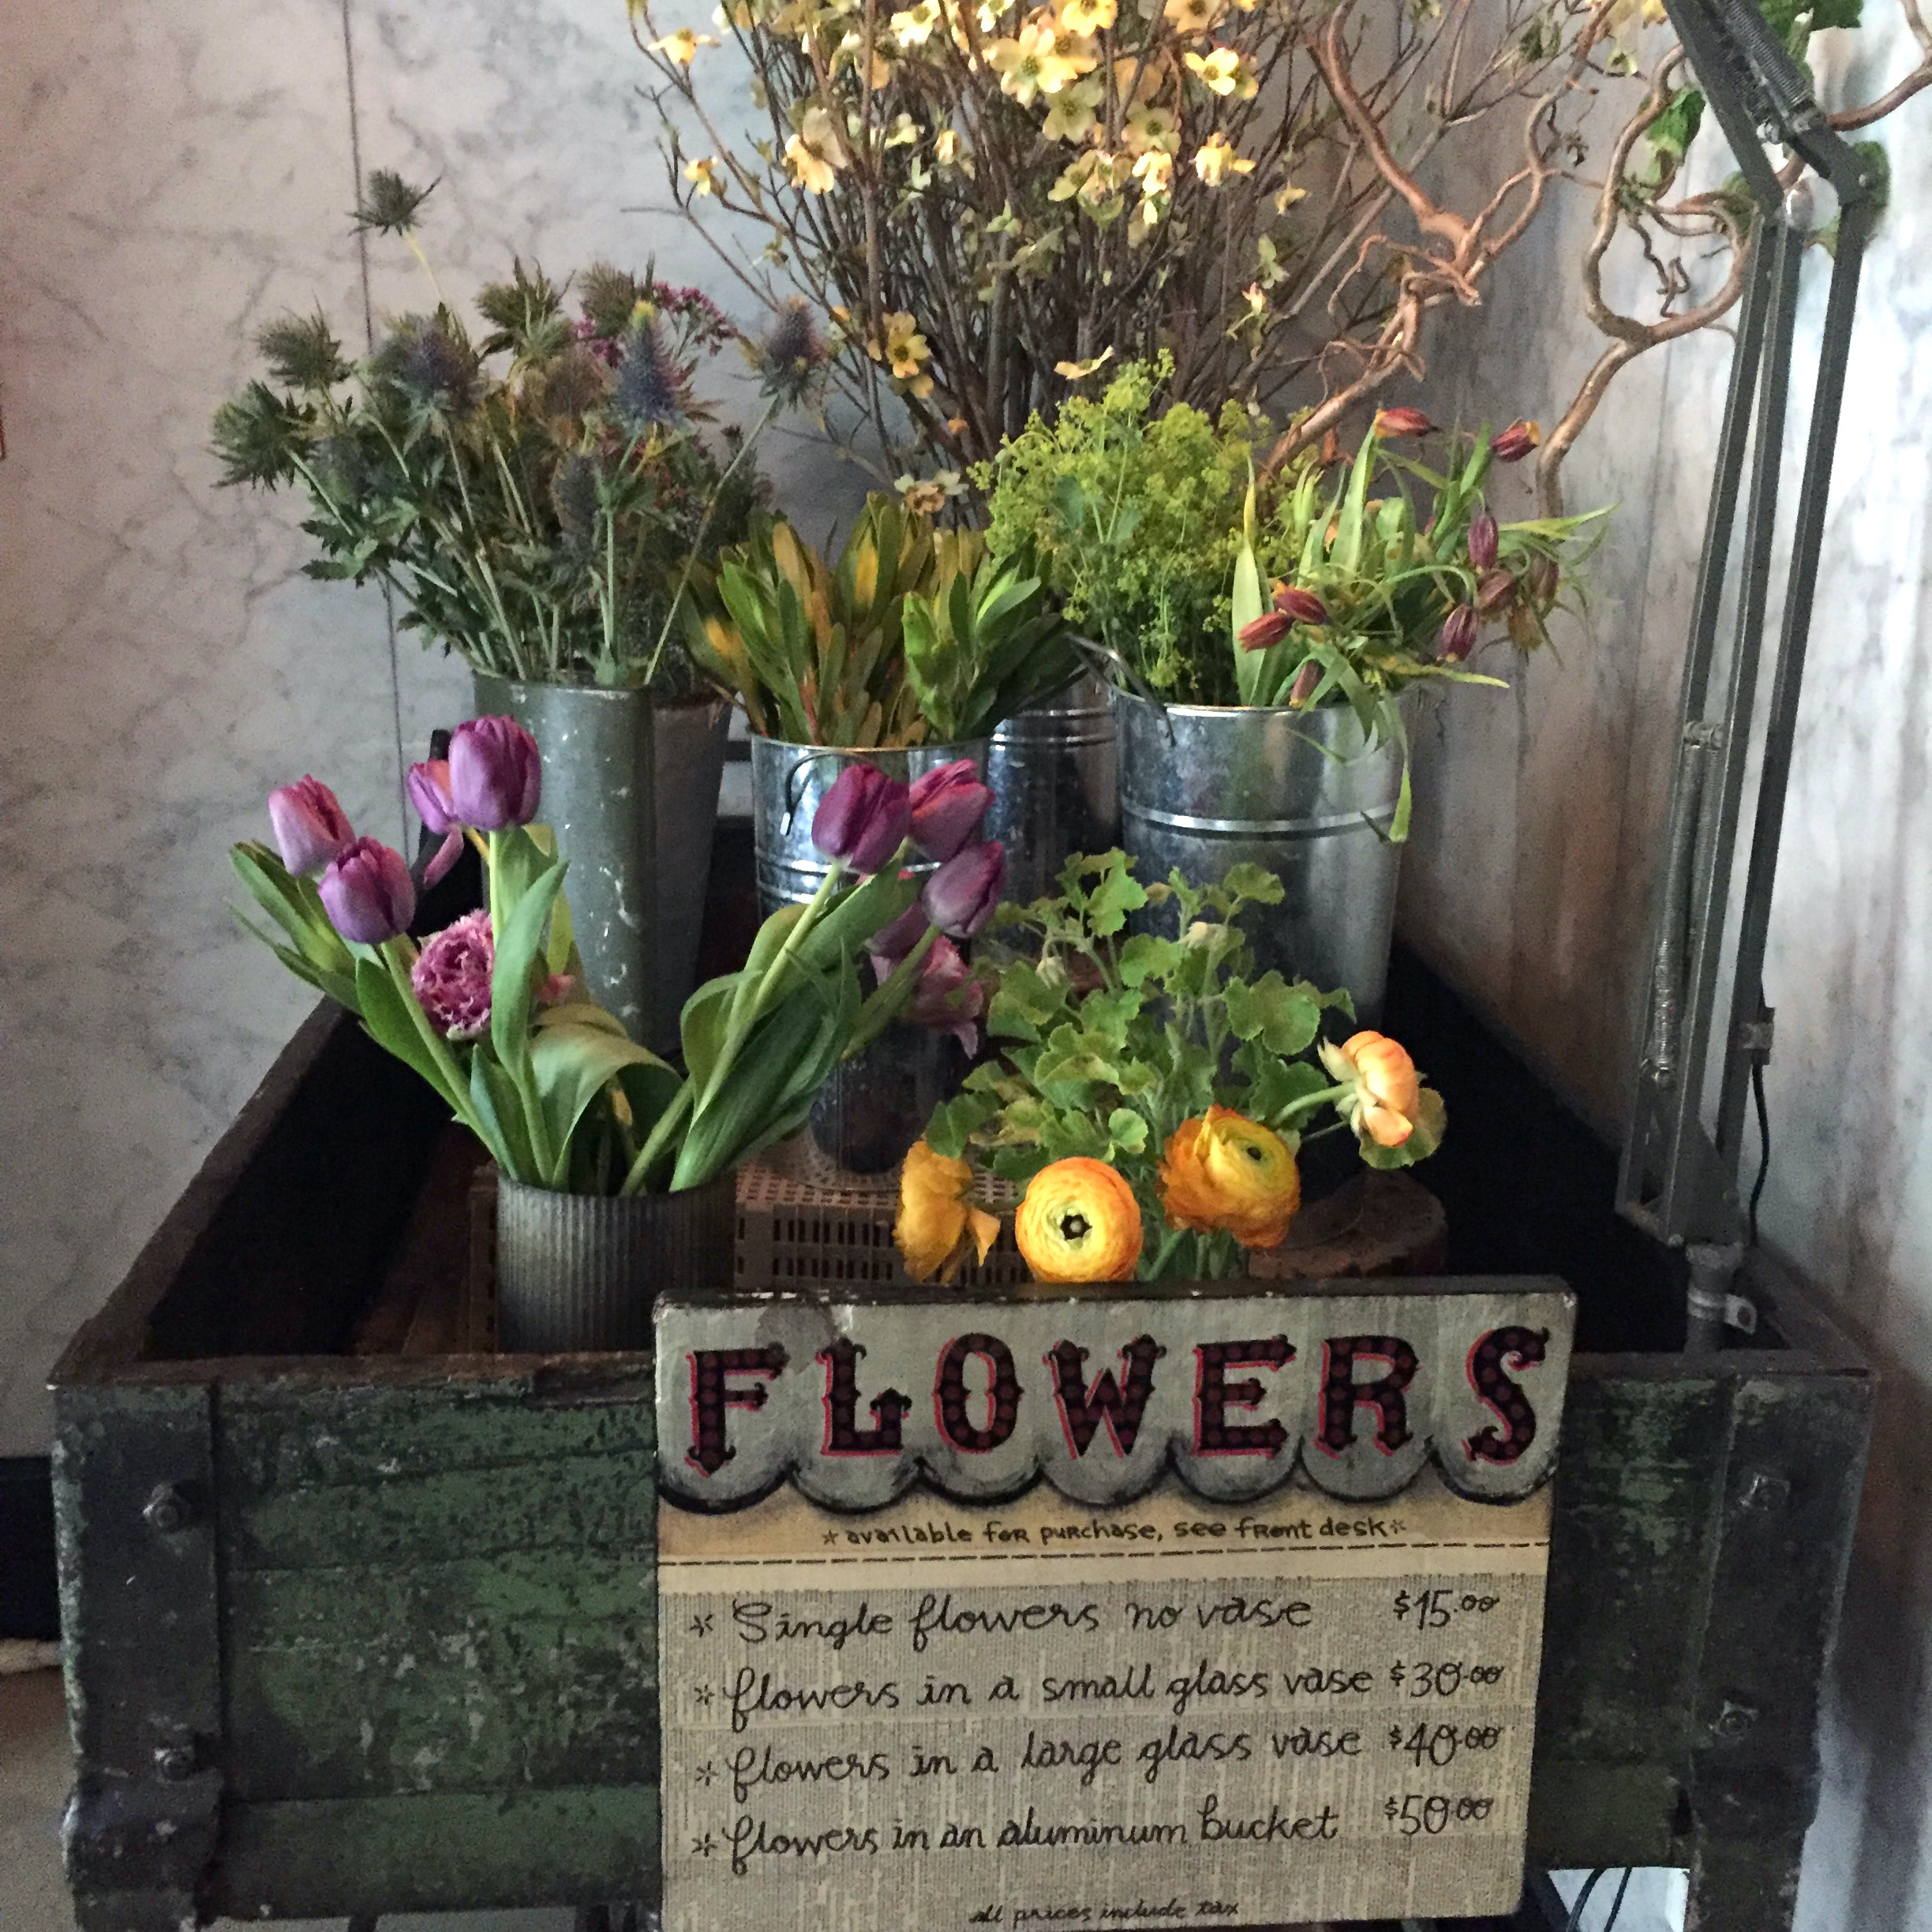 FLOWERS
*available for purchase, see front desk*
* Single flowers no vase $15.00
* flowers in a small glass vase $30.00
* flowers in a large glass vase $40.00
* flowers in an aluminum bucket $50.00
all prices include tax